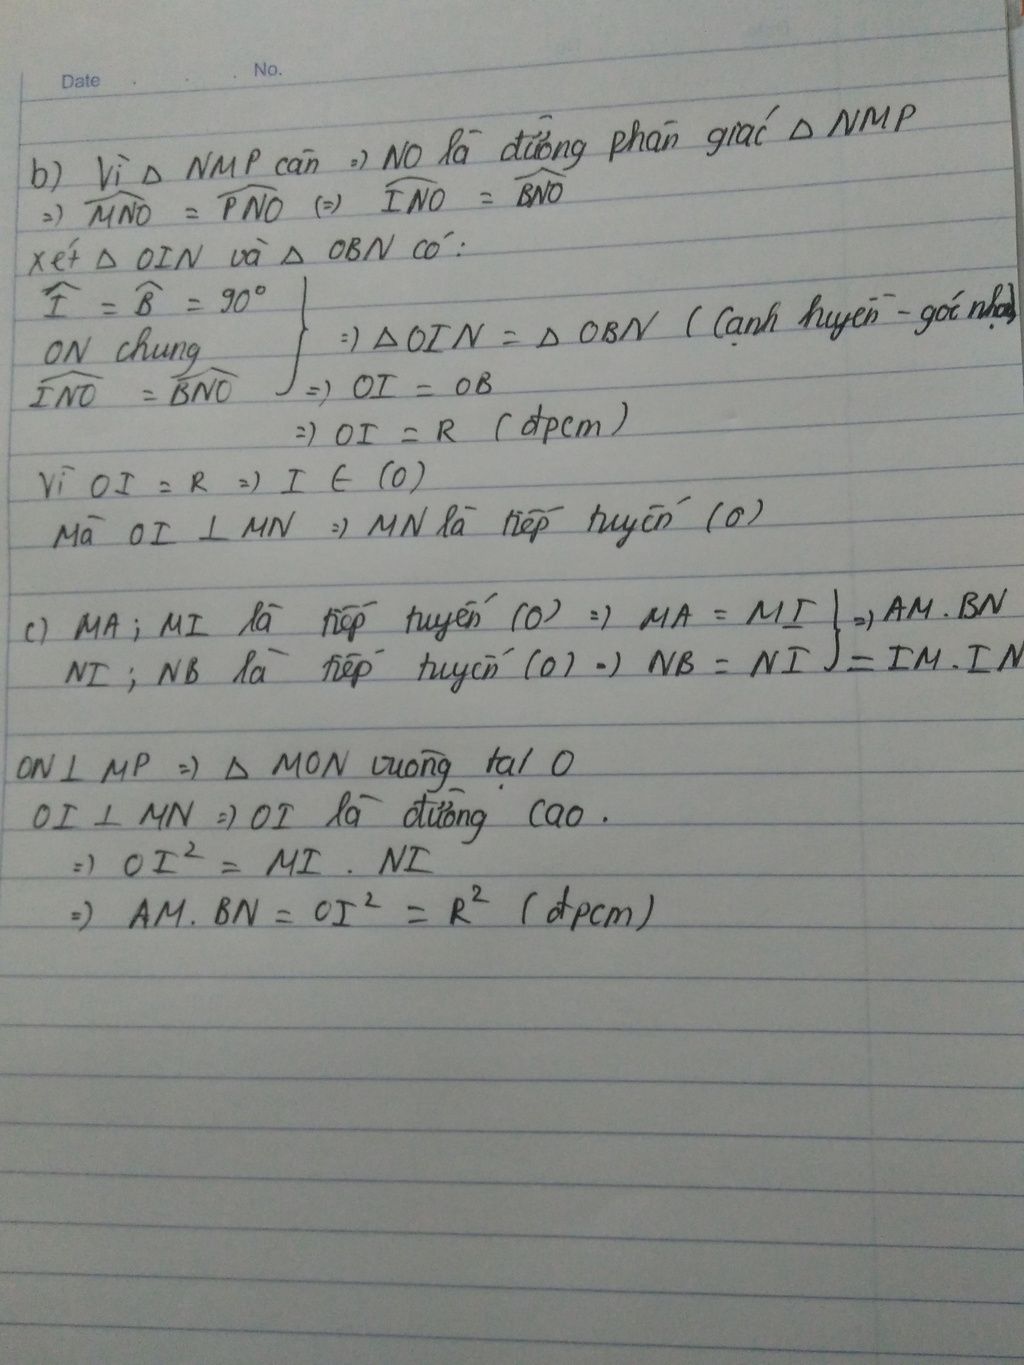 Date . . . No.
b) Vì △ NMP cân => NO là đường phân giác △ NMP
=> \widehat{MNO} = \widehat{PNO} (=> \widehat{INO} = \widehat{BNO}
Xét △ OIN và △ OBN có:
\widehat{I} = \widehat{B} = 90°
ON chung } => △OIN = △ OBN (cạnh huyền - góc nhọn)
\widehat{INO} = \widehat{BNO} => OI = OB
=> OI = R (đpcm)
Vì OI = R => I ∈ (O)
Mà OI ⊥ MN => MN là tiếp tuyến (O)
c) MA ; MI là tiếp tuyến (O) => MA = MI } => AM.BN
NI ; NB là tiếp tuyến (O) => NB = NI } = IM.IN
ON ⊥ MP => △ MON vuông tại O
OI ⊥ MN => OI là đường cao.
=> OI² = MI . NI
=> AM. BN = OI² = R² (đpcm)